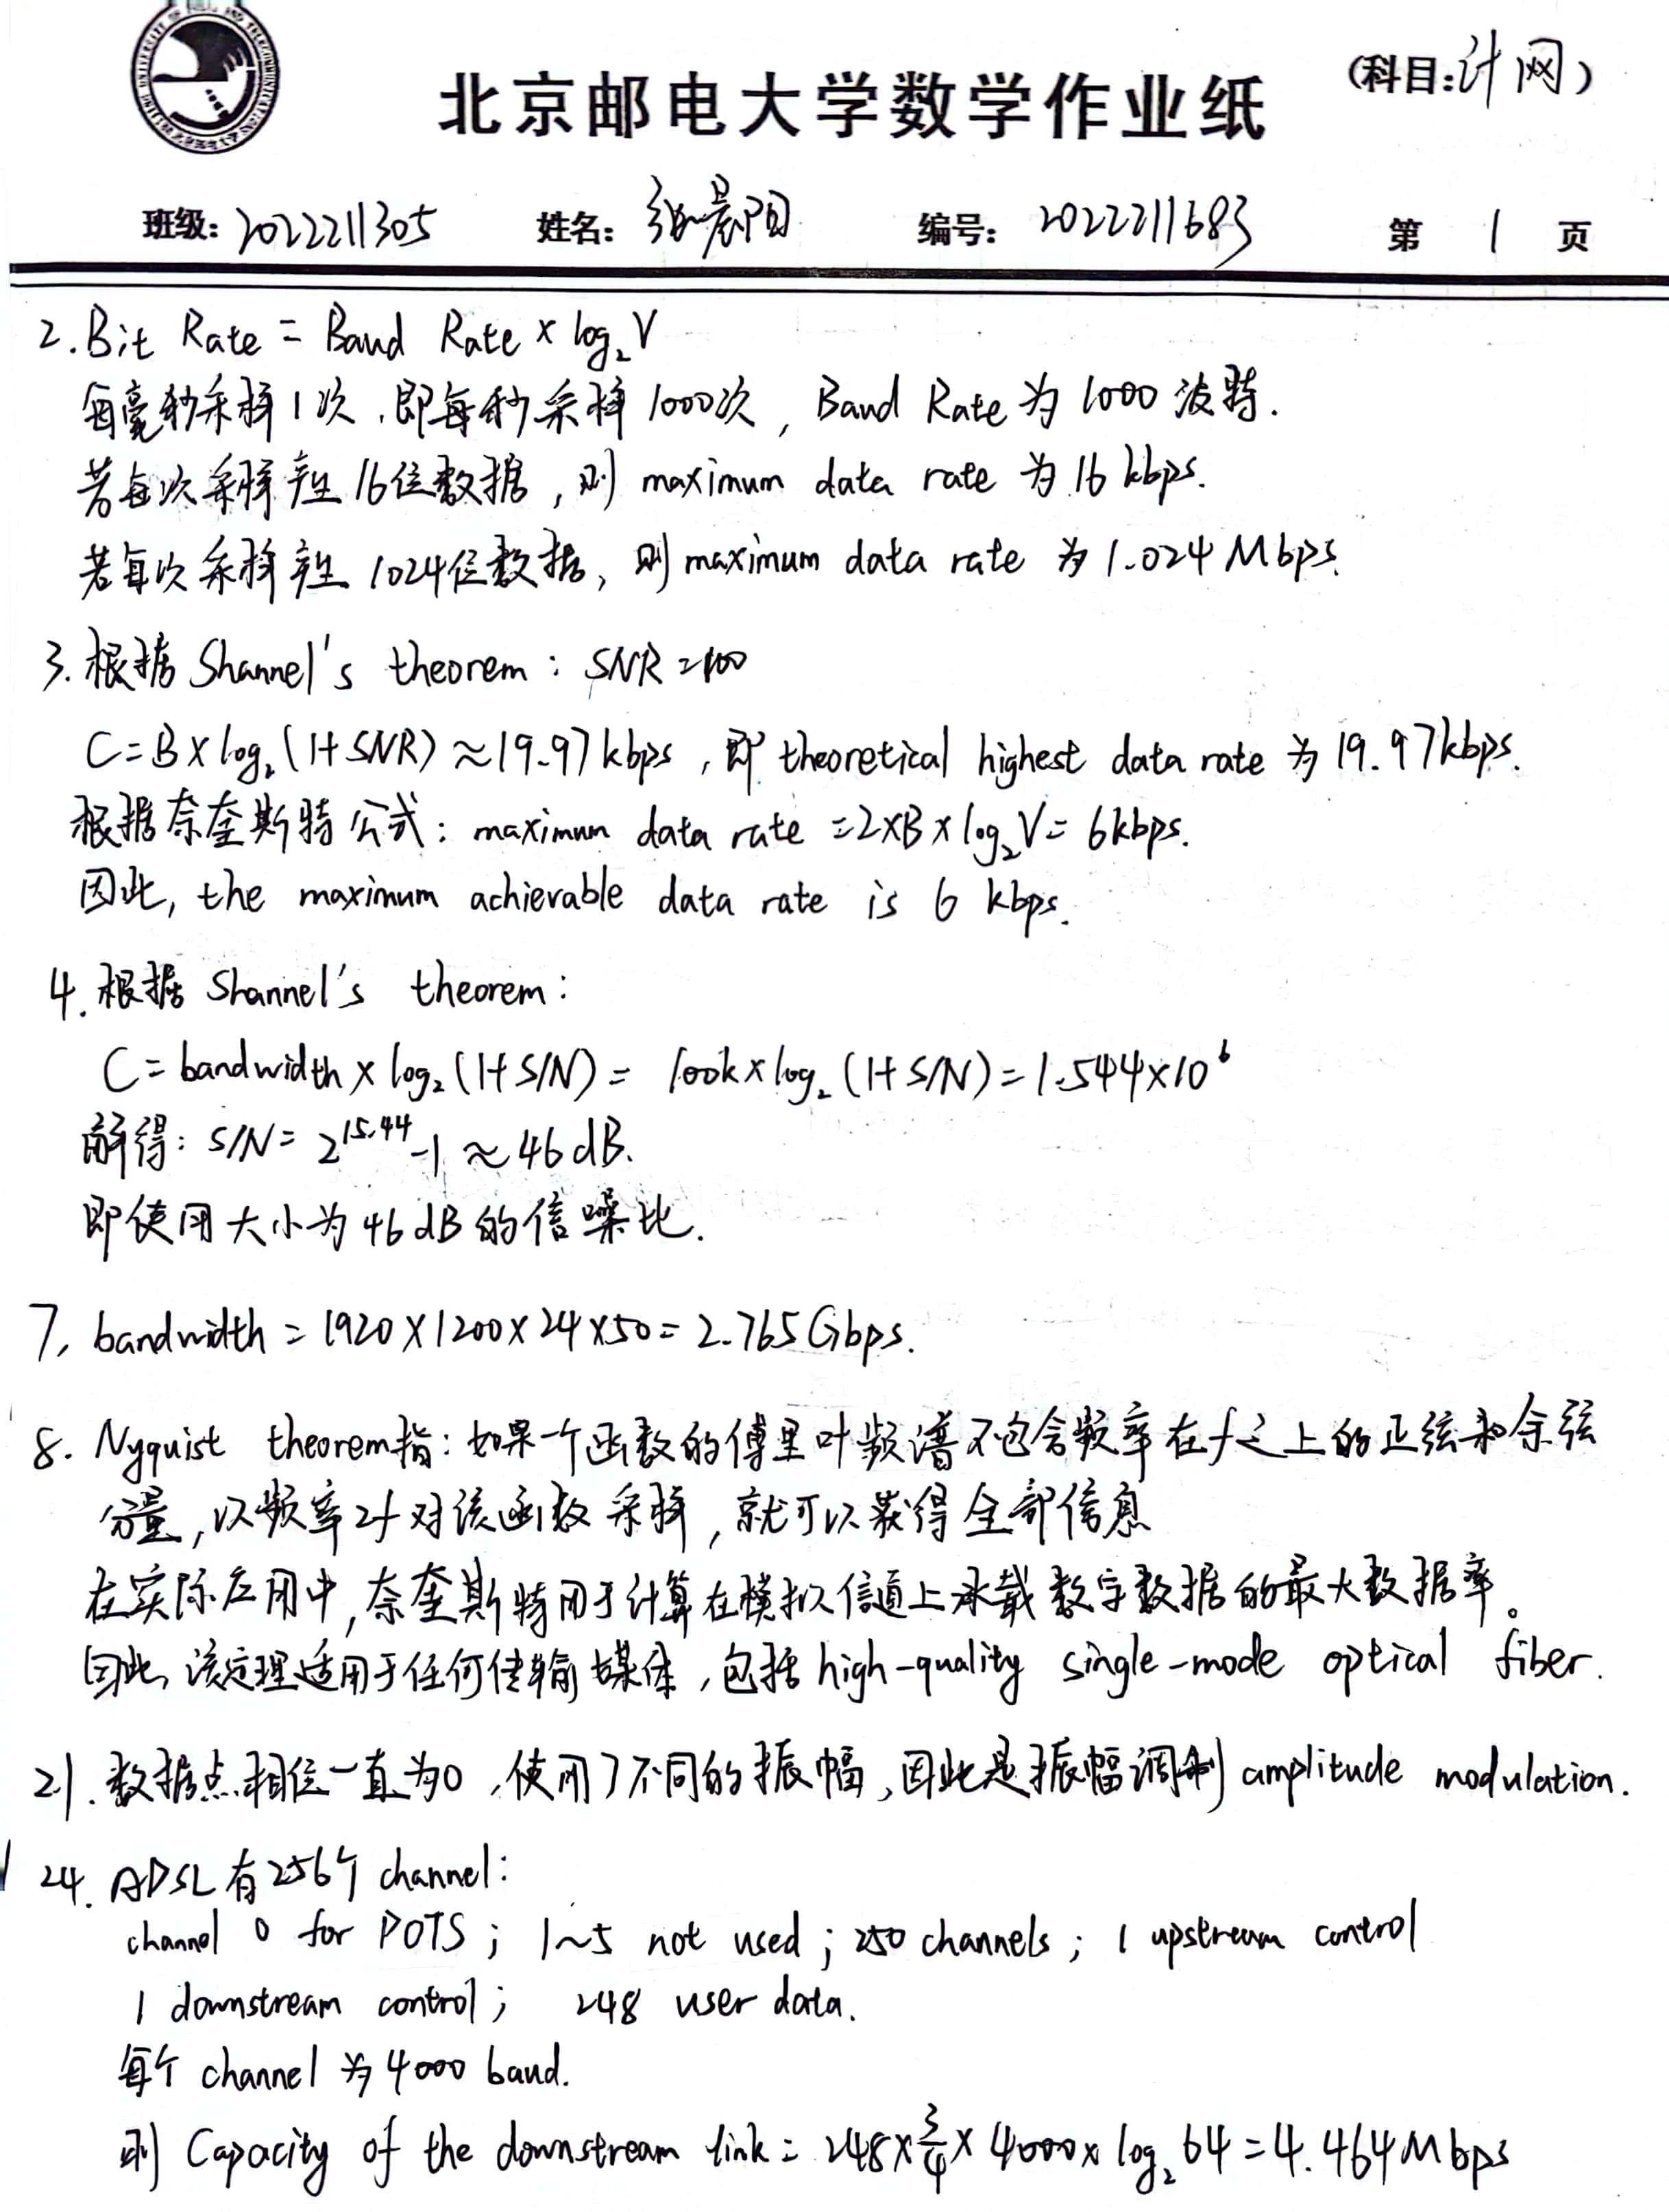 (科目:计网)
北京邮电大学数学作业纸
班级: 2022211305 姓名: 张晨阳 编号: 2022211683 第 1 页
2. Bit Rate = Baud Rate × log₂V
每毫秒采样1次,即每秒采样1000次, Baud Rate 为 1000 波特.
若每次采样产生16位数据,则 maximum data rate 为 16 kbps.
若每次采样产生1024位数据,则 maximum data rate 为 1.024 Mbps.
3. 根据 Shannel's theorem: SNR=100
C=B×log₂(1+SNR)≈19.97kbps,即 theoretical highest data rate 为 19.97kbps.
根据奈奎斯特公式: maximum data rate =2×B×log₂V= 6kbps.
因此, the maximum achievable data rate is 6 kbps.
4. 根据 Shannel's theorem:
C= bandwidth × log₂(1+S/N) = 100k×log₂(1+S/N)=1.544×10⁶
解得: S/N= 2^15.44-1 ≈46 dB.
即使用大小为46dB的信噪比.
7, bandwidth = 1920×1200×24×50=2.765Gbps.
8. Nyquist theorem指:如果一个函数的傅里叶频谱不包含频率在f之上的正弦和余弦
分量,以频率2f对该函数采样,就可以获得全部信息
在实际应用中,奈奎斯特用于计算在模拟信道上承载数字数据的最大数据率。
因此,该定理适用于任何传输媒体,包括 high-quality single-mode optical fiber.
21. 数据点相位一直为0,使用了不同的振幅,因此是振幅调制 amplitude modulation.
24. ADSL有256个 channel:
channel 0 for POTS; 1~5 not used; 250 channels; 1 upstream control
1 downstream control; 248 user data.
每个 channel 为 4000 baud.
则 Capacity of the downstream link = 248×3/4×4000×log₂64=4.464Mbps